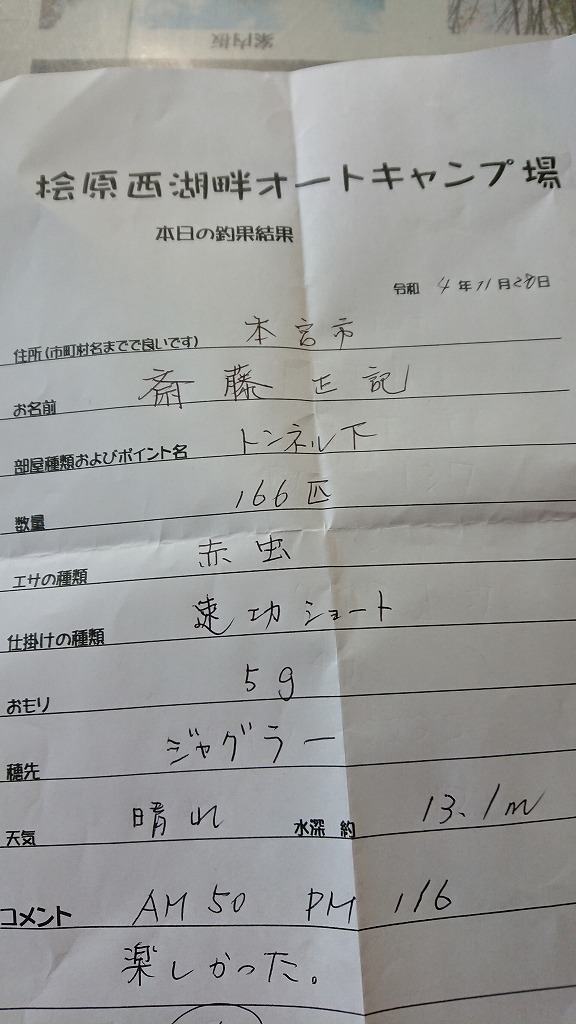 案内板
桧原西湖畔オートキャンプ場
本日の釣果結果
令和 4年11月28日
住所(市町村名までで良いです) 本宮市
お名前 斎藤正記
部屋種類およびポイント名 トンネル下
数量 166匹
エサの種類 赤虫
仕掛けの種類 速功ショート
おもり 5g
穂先 ジャグラー
天気 晴れ 水深 約 13.1m
コメント AM 50 PM 116
楽しかった。